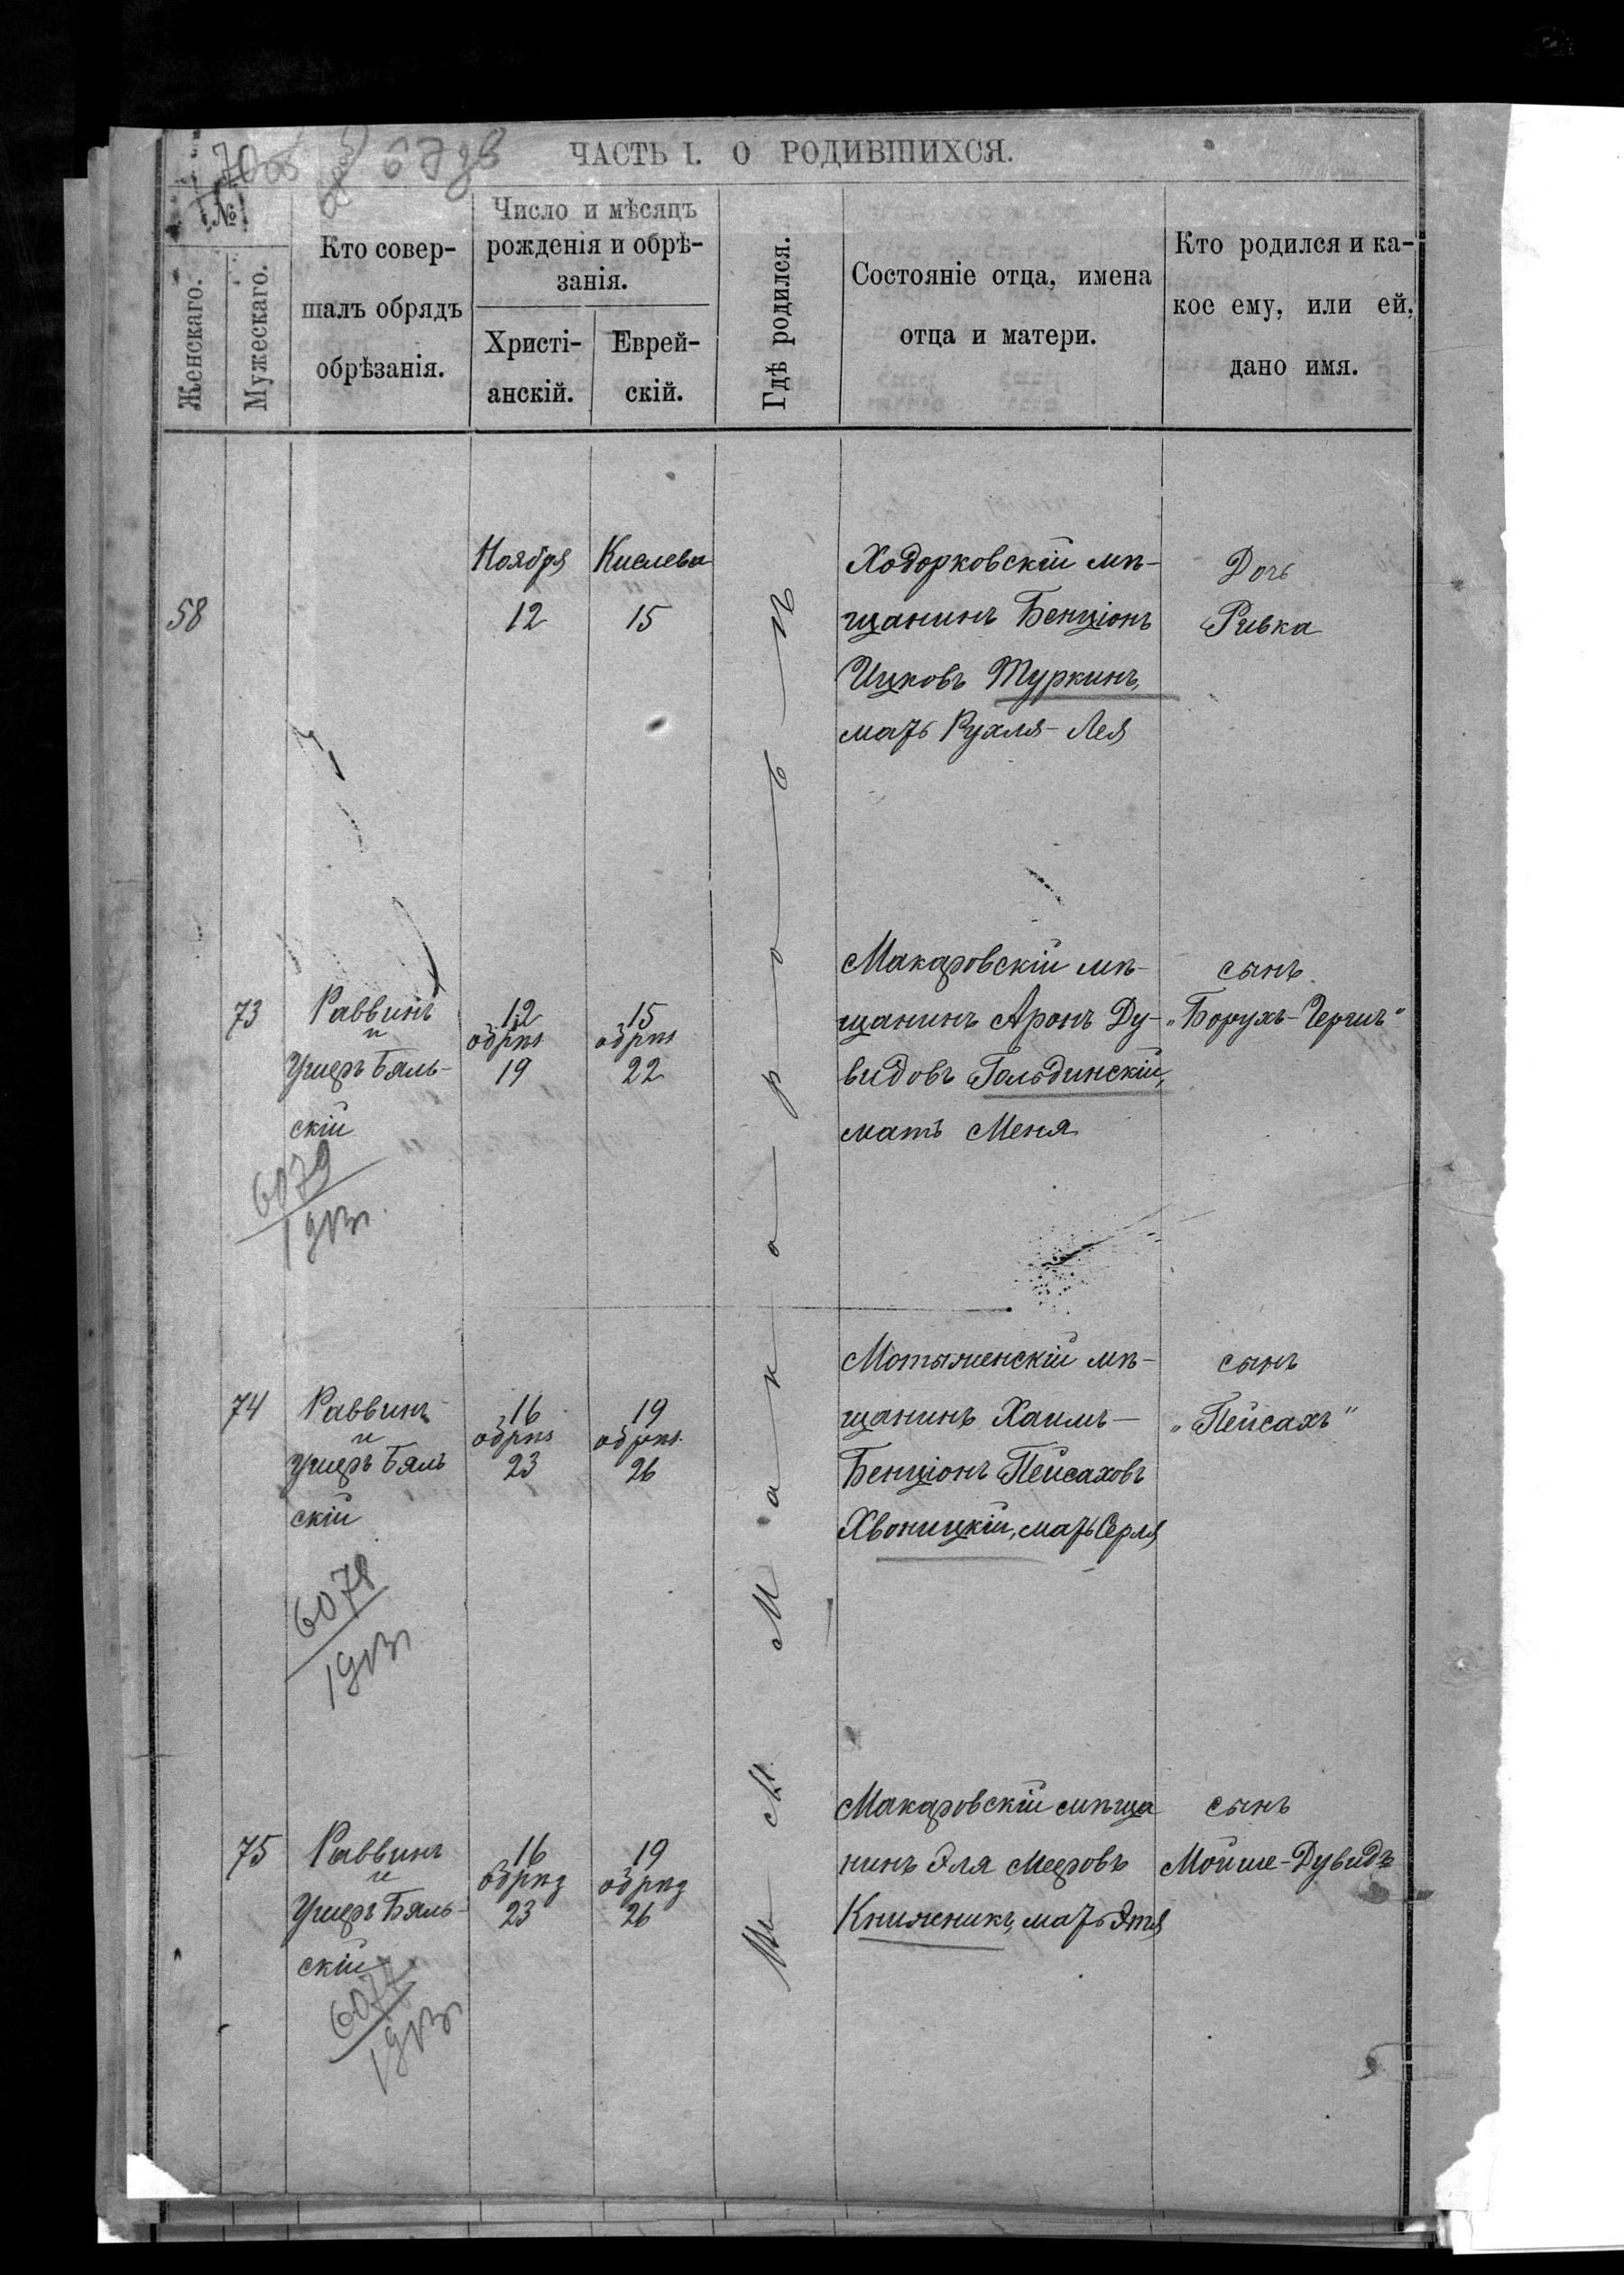 ЧАСТЬ I. О РОДИВШИХСЯ.
№
Женскаго.
Мужескаго.
Кто совер-
шалъ обрядъ
обрѣзанія.
Число и мѣсяцъ
рожденія и обрѣ-
занія.
Христі-
анскій.
Еврей-
скій.
Гдѣ родился.
Состояніе отца, имена
отца и матери.
Кто родился и ка-
кое ему, или ей,
дано имя.
Въ м. Макаровѣ
58
Ноября
12
Кислева
15
Ходорковскій мѣ-
щанинъ Бенціонъ
Ицковъ Туркинъ,
мать Рухля-Лея
Дочь
Ривка
73
Раввинъ
и
Ушеръ Бяль-
скій
12
обрѣз
19
15
обрѣз
22
Макаровскій мѣ-
щанинъ Аронъ Ду-
видовъ Гольдинскій,
мать Меня
сынъ
„Борухъ-Гершъ"
6079
1913
74
Раввинъ
и
Ушеръ Бяль
скій
16
обрѣз
23
19
обрѣз.
26
Мотыженскій мѣ-
щанинъ Хаимъ-
Бенціонъ Пейсаховъ
Хвоницкій, мать Серля
сынъ
„Пейсахъ"
6078
1913
75
Раввинъ
и
Ушеръ Бяль-
скій
16
обрѣз
23
19
обрѣз
26
Макаровскій мѣща
нинъ Эля Мееровъ
Книжникъ, мать Этя
сынъ
Мойше-Дувидъ
6077
1913